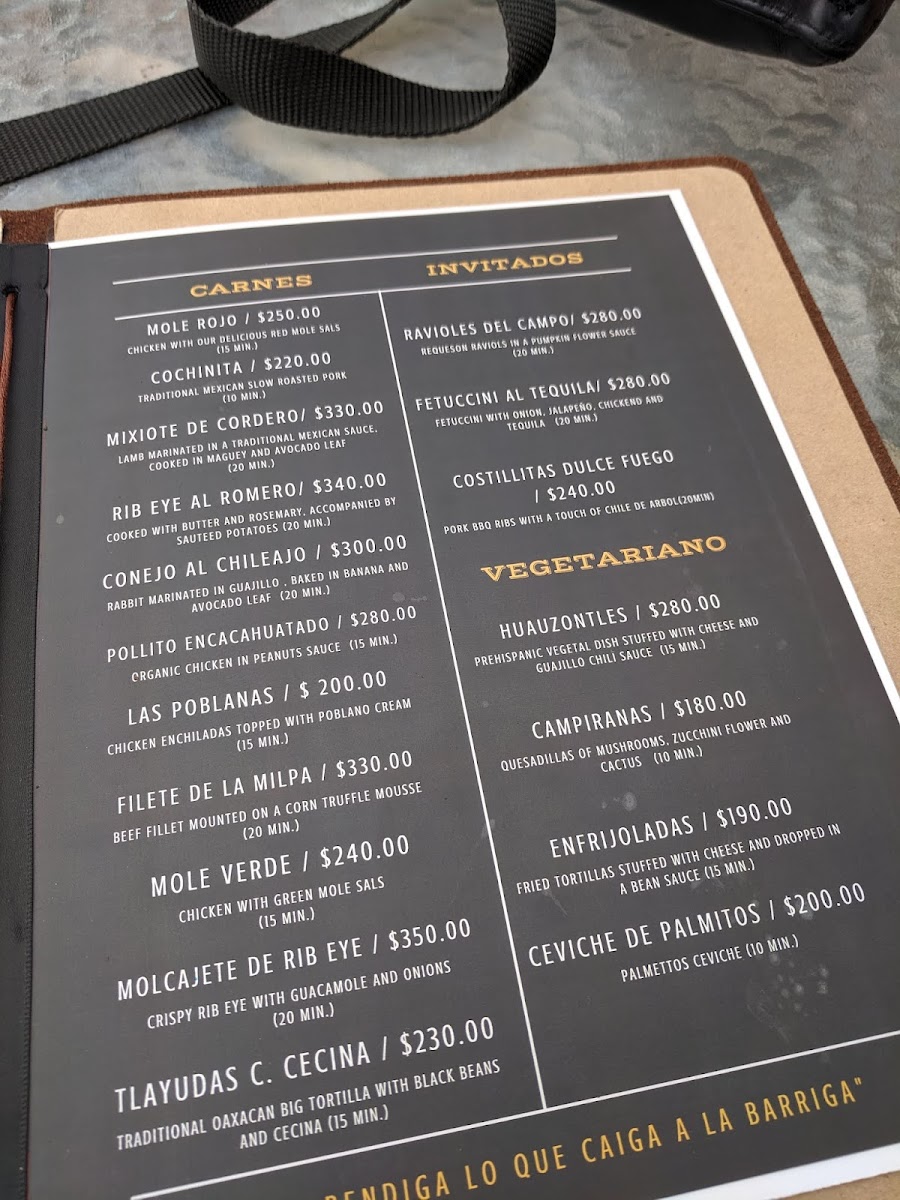 CARNES
MOLE ROJO / $250.00
CHICKEN WITH OUR DELICIOUS RED MOLE SALS
(15 MIN.)
COCHINITA / $220.00
TRADITIONAL MEXICAN SLOW ROASTED PORK
(10 MIN.)
MIXIOTE DE CORDERO/ $330.00
LAMB MARINATED IN A TRADITIONAL MEXICAN SAUCE,
COOKED IN MAGUEY AND AVOCADO LEAF
(20 MIN.)
RIB EYE AL ROMERO/ $340.00
COOKED WITH BUTTER AND ROSEMARY, ACCOMPANIED BY
SAUTEED POTATOES (20 MIN.)
CONEJO AL CHILEAJO / $300.00
RABBIT MARINATED IN GUAJILLO , BAKED IN BANANA AND
AVOCADO LEAF (20 MIN.)
POLLITO ENCACAHUATADO / $280.00
ORGANIC CHICKEN IN PEANUTS SAUCE (15 MIN.)
LAS POBLANAS / $ 200.00
CHICKEN ENCHILADAS TOPPED WITH POBLANO CREAM
(15 MIN.)
FILETE DE LA MILPA / $330.00
BEEF FILLET MOUNTED ON A CORN TRUFFLE MOUSSE
(20 MIN.)
MOLE VERDE / $240.00
CHICKEN WITH GREEN MOLE SALS
(15 MIN.)
MOLCAJETE DE RIB EYE / $350.00
CRISPY RIB EYE WITH GUACAMOLE AND ONIONS
(20 MIN.)
TLAYUDAS C. CECINA / $230.00
TRADITIONAL OAXACAN BIG TORTILLA WITH BLACK BEANS
AND CECINA (15 MIN.)
INVITADOS
RAVIOLES DEL CAMPO/ $280.00
REQUESON RAVIOLS IN A PUMPKIN FLOWER SAUCE
(20 MIN.)
FETUCCINI AL TEQUILA/ $280.00
FETUCCINI WITH ONION, JALAPEÑO, CHICKEND AND
TEQUILA (20 MIN.)
COSTILLITAS DULCE FUEGO
/ $240.00
PORK BBQ RIBS WITH A TOUCH OF CHILE DE ARBOL(20MIN)
VEGETARIANO
HUAUZONTLES / $280.00
PREHISPANIC VEGETAL DISH STUFFED WITH CHEESE AND
GUAJILLO CHILI SAUCE (15 MIN.)
CAMPIRANAS / $180.00
QUESADILLAS OF MUSHROOMS, ZUCCHINI FLOWER AND
CACTUS (10 MIN.)
ENFRIJOLADAS / $190.00
FRIED TORTILLAS STUFFED WITH CHEESE AND DROPPED IN
A BEAN SAUCE (15 MIN.)
CEVICHE DE PALMITOS / $200.00
PALMETTOS CEVICHE (10 MIN.)
LO QUE CAIGA A LA BARRIGA"